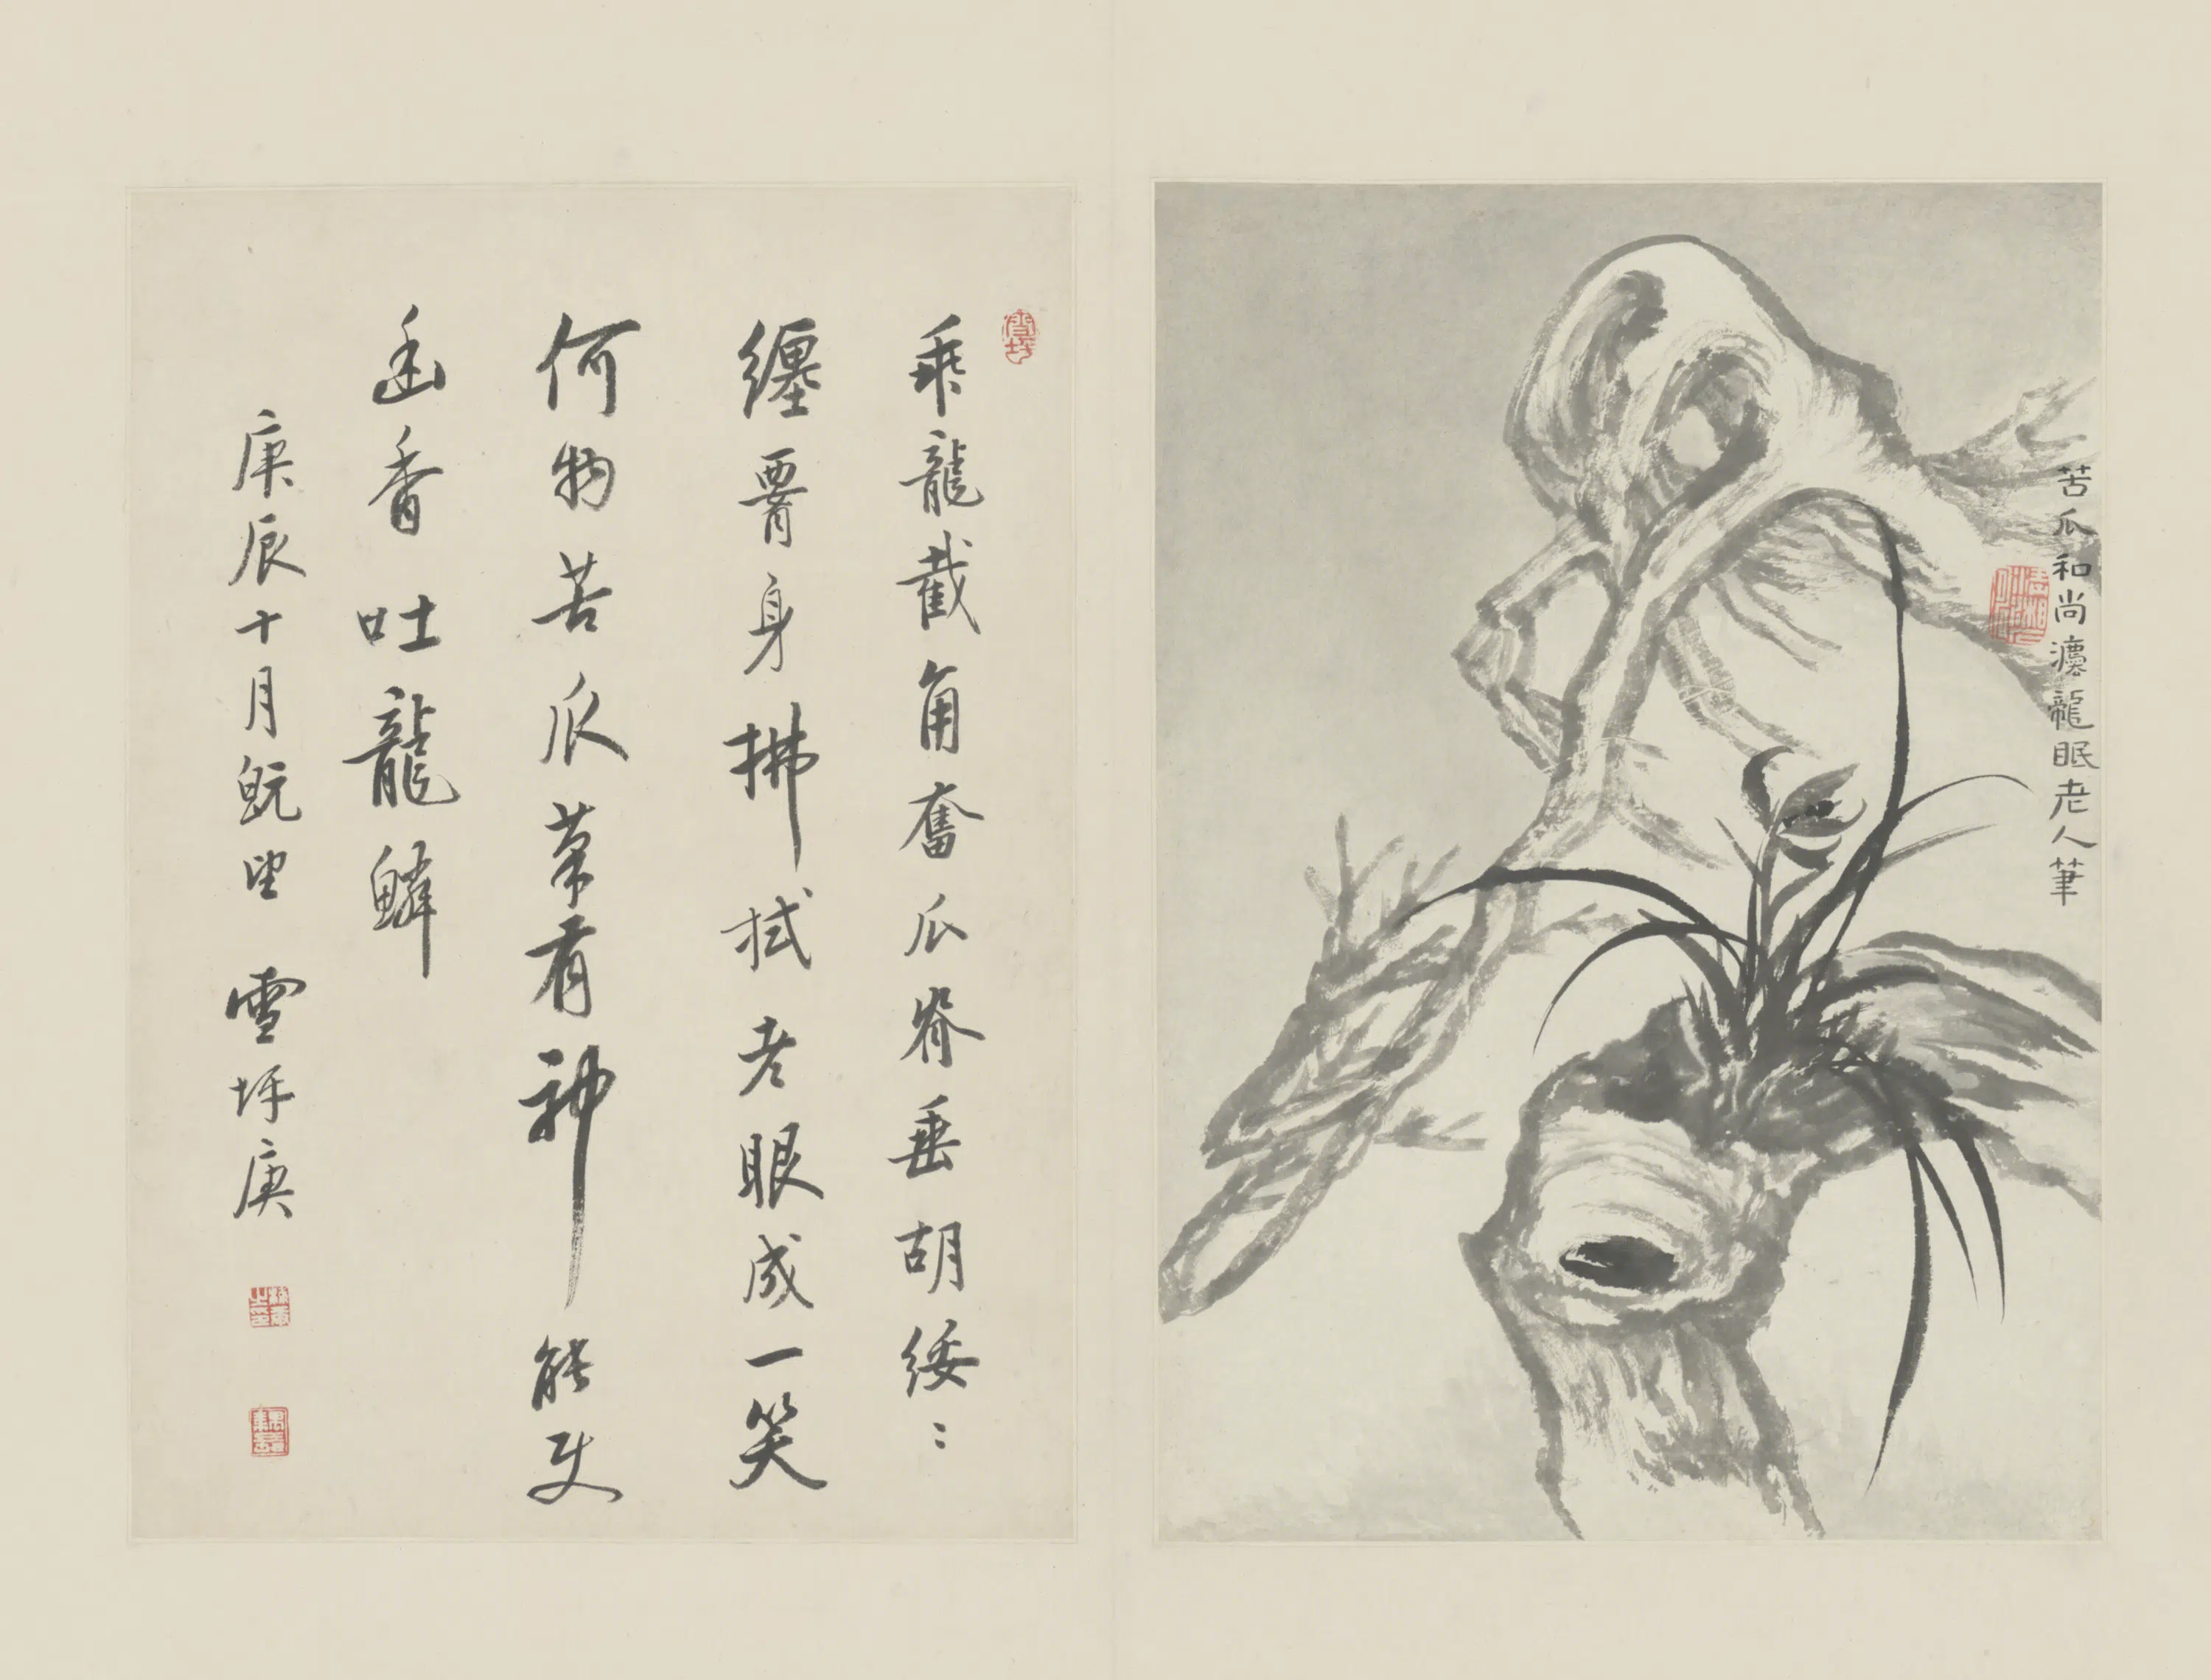 苦瓜和尚灋龍眠老人筆
雪坪
乖龍截角奮爪脊垂胡綏〻
纏罥身拂拭老眼成一笑
何物苦瓜筆有神能使
幽香吐龍鱗
庚辰十月既望 雪坪庚
梅庚之印